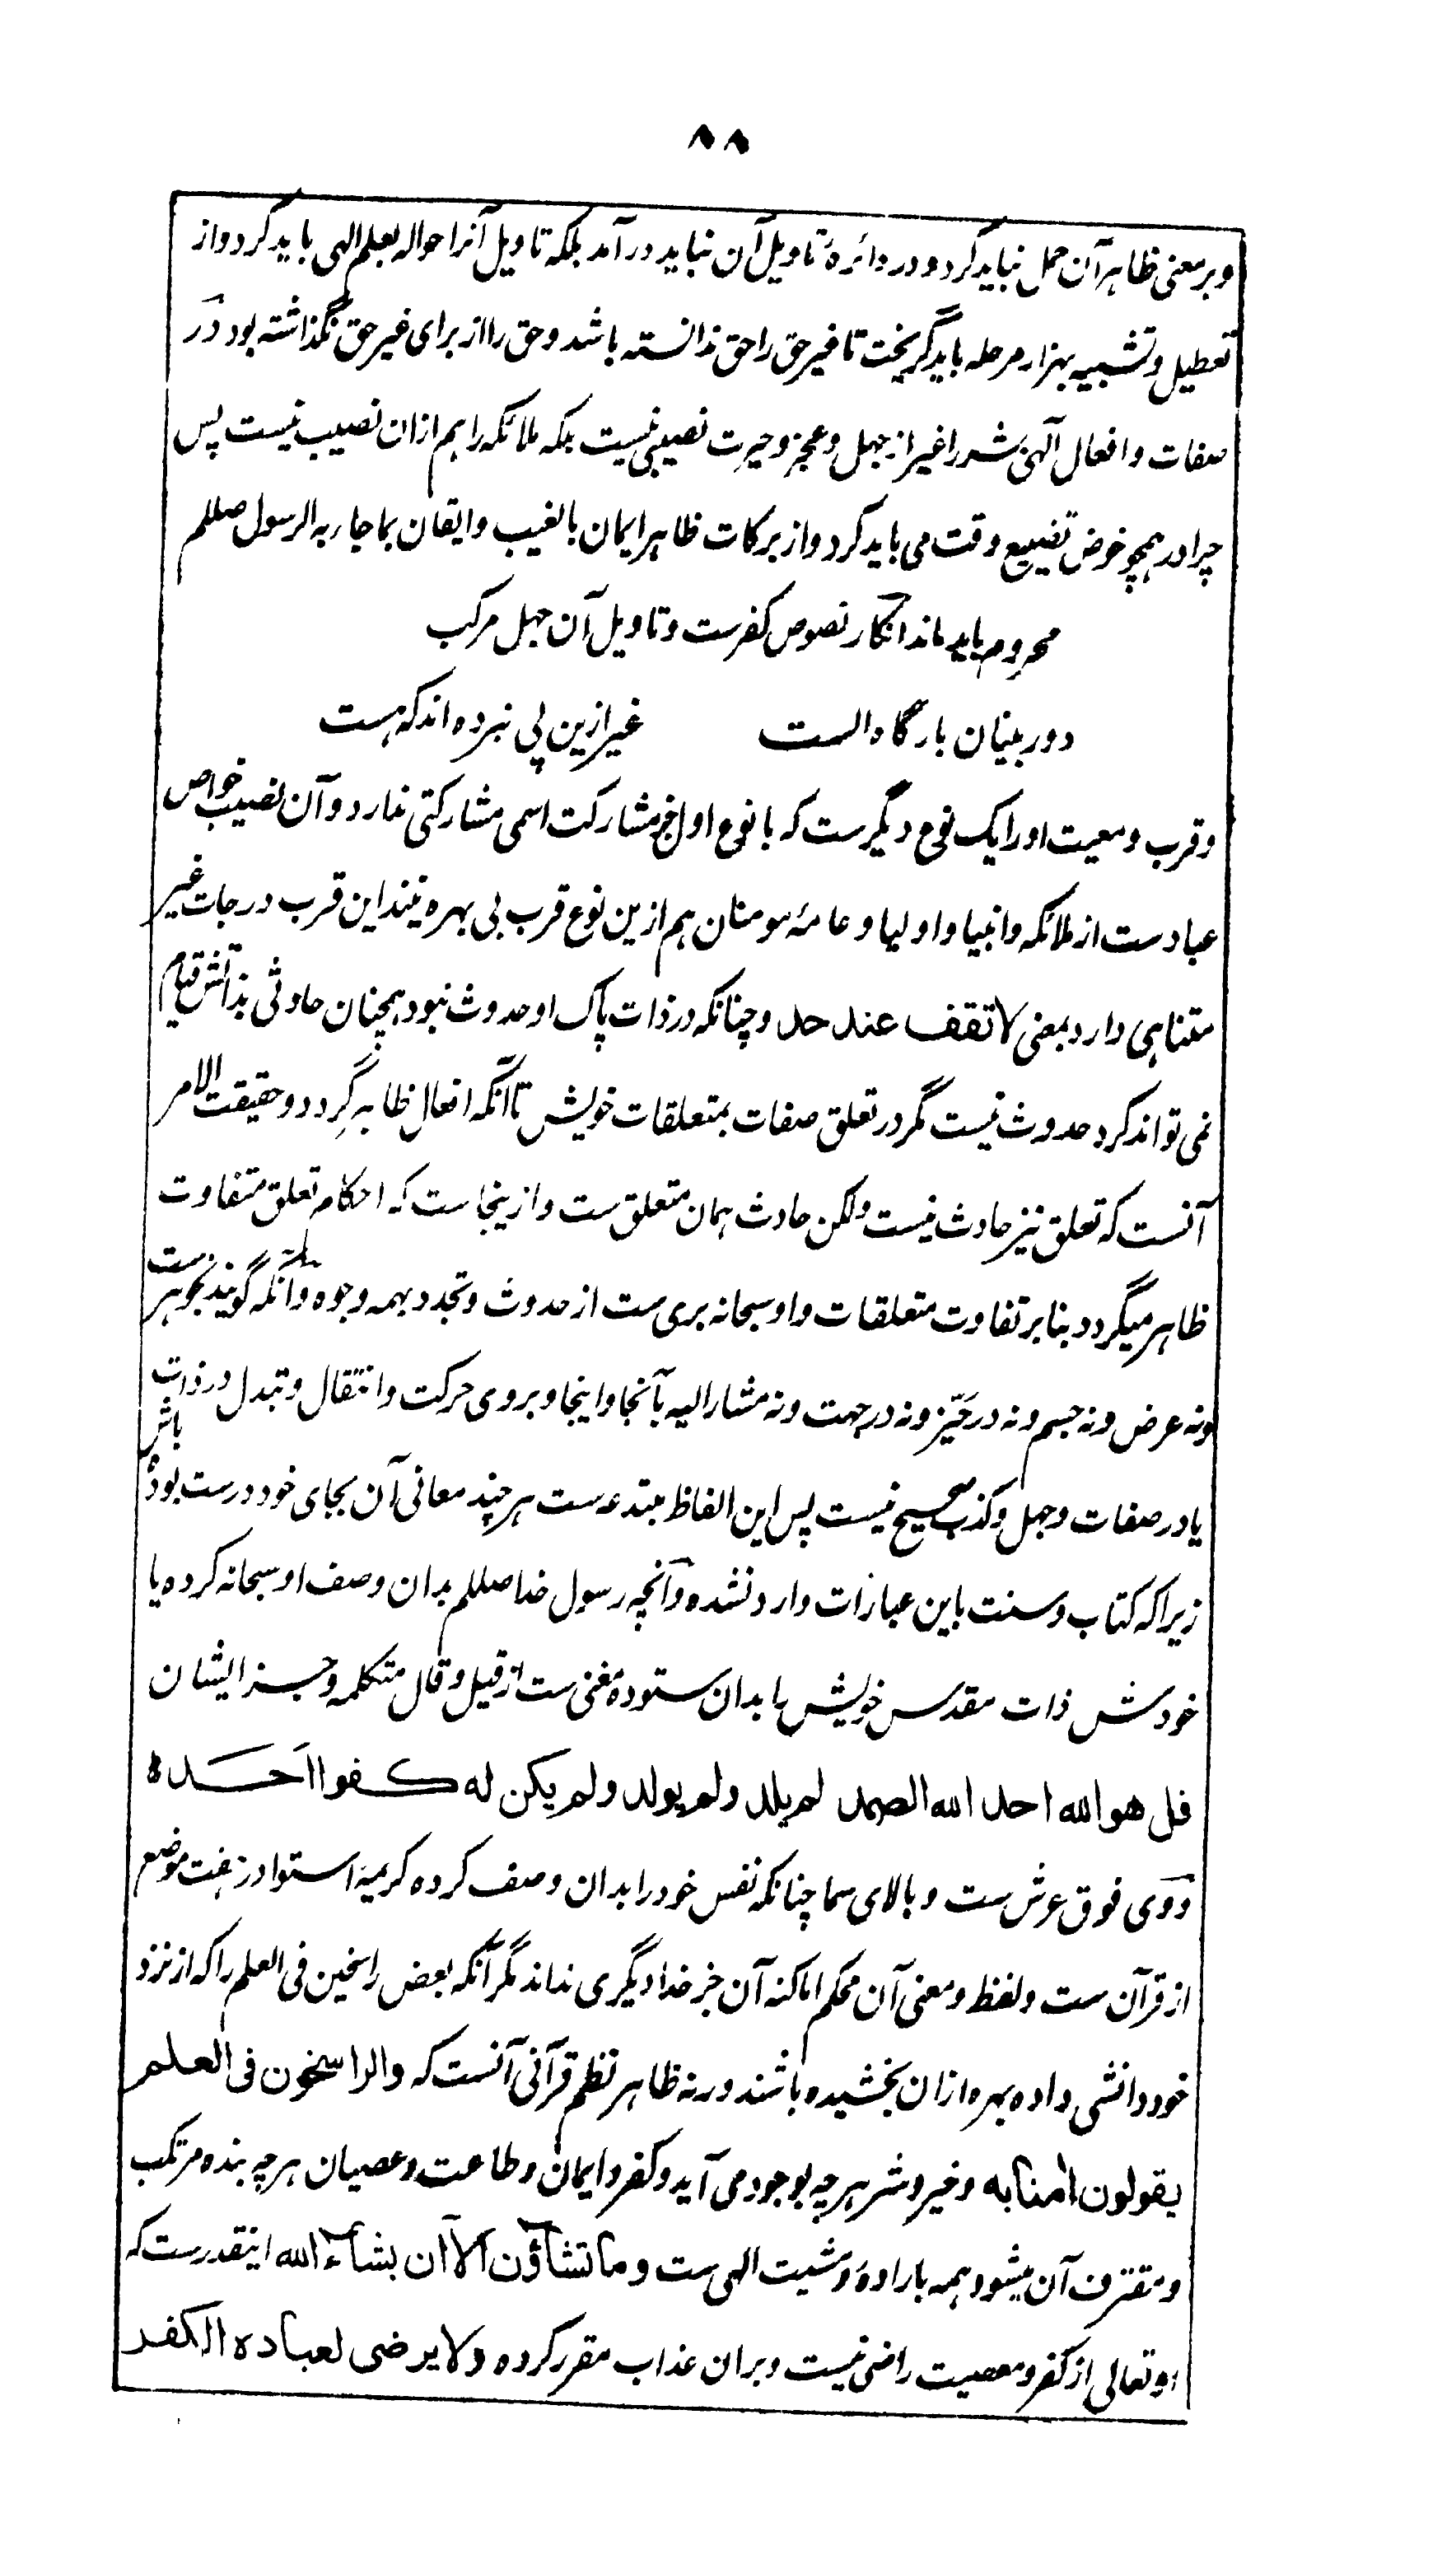 ۸۸
وبر معنی ظاہر آن حمل نباید کرد و در دائرهٔ تاویل آن نباید در آمد بلکه تاویل آنرا حواله بعلم الہی باید کرد و از
تعطیل و تشبیه بہزار مرحله باید گریخت تا غیر حق را حق ندانسته باشد و حق را از برای غیر حق نگذاشته بود و در
صفات و افعال آلہی بشر را غیر از جہل و عجز و حیرت نصیبی نیست بلکه ملائکه را ہم ازان نصیب نیست پس
چرا در ہمچو خوض تضییع وقت می باید کرد و از برکات ظاہر ایمان بالغیب و ایقان بما جاء به الرسول صللم
محروم باید ماند انکار نصوص کفرست و تاویل آن جہل مرکب
دور بینان بارگاه الست غیر ازین پی نبرده اند که ہست
و قرب و معیت او را یک نوع دیگرست که با نوع اول جز مشارکت اسمی مشارکتی ندارد و آن نصیب خواص
عبادست از ملائکه و انبیا و اولیا و عامهٔ مومنان ہم ازین نوع قرب بی بہره نیند این قرب درجات غیر
متناہی دارد بمعنی لا تقف عند حد و چنانکه در ذات پاک او حدوث نبود ہمچنان حادثی بذاتش قیام
نمی تواند کرد حدوث نیست مگر در تعلق صفات بمتعلقات خویش تا آنکه افعال ظاہر گردد و حقیقت الامر
آنست که تعلق نیز حادث نیست ولکن حادث ہمان متعلق ست و ازینجاست که احکام تعلق متفاوت
ظاہر میگردد بنا بر تفاوت متعلقات و او سبحانه بری ست از حدوث و تجدد بہمه وجوه و آنکه گویند نه جوہر ست
و نه عرض و نه جسم و نه در حیّز و نه در جہت و نه مشار الیه بآنجا و اینجا و بر وی حرکت و انتقال و تبدل در ذات
یا در صفات و جہل و کذب صحیح نیست پس این الفاظ مبتدعه ست ہر چند معانی آن بجای خود درست بوده باشد
زیرا که کتاب و سنت باین عبارات وارد نشده و آنچه رسول خدا صللم بدان وصف او سبحانه کرده یا
خودش ذات مقدس خویش را بدان ستوده مغنی ست از قیل و قال متکلمه و جز ایشان
قل هو الله احد الله الصمد لم یلد ولم یولد ولم یکن له کفوا احد ہ
و وی فوق عرش ست و بالای سما چنانکه نفس خود را بدان وصف کرده کریمهٔ استوا در ہفت موضع
از قرآن ست و لفظ و معنی آن محکم اما کنه آن جز خدا دیگری نداند مگر آنکه بعض راسخین فی العلم را که از نزد
خود دانشی داده بہره ازان بخشیده باشند ورنه ظاہر نظم قرآنی آنست که والراسخون فی العلم
یقولون امنا به و خیر و شر ہر چه بوجود می آید و کفر و ایمان و طاعت و عصیان ہر چه بنده مرتکب
و مقترف آن میشود ہمه باراده و مشیت الہی ست وما تشاؤن الا ان یشاء الله اینقدرست که
او تعالی از کفر و معصیت راضی نیست و بران عذاب مقرر کرده ولا یرضی لعباده الکفر